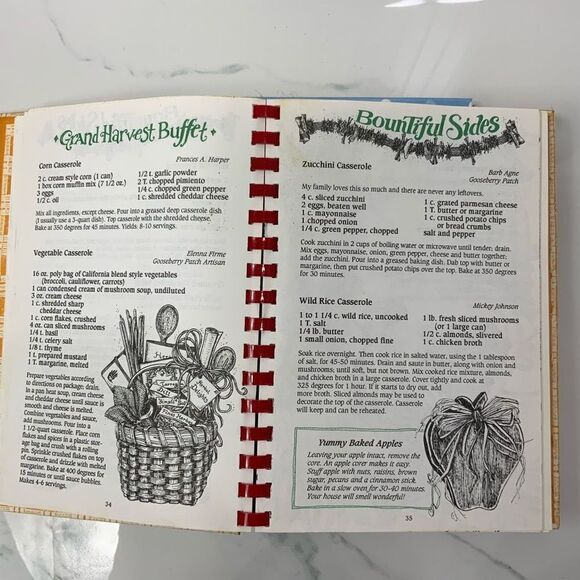 Grand Harvest Buffet
Corn Casserole
Frances A. Harper
2 c. cream style corn (1 can)
1 box corn muffin mix (7 1/2 oz.)
3 eggs
1/2 c. oil
1/2 t. garlic powder
2 T. chopped pimiento
1/4 c. chopped green pepper
1 c. shredded cheddar cheese
Mix all ingredients, except cheese. Pour into a greased deep casserole dish
(I usually use a 3-quart dish). Top casserole with the shredded cheese.
Bake at 350 degrees for 45 minutes. Yields: 8-10 servings.
Vegetable Casserole
Elenna Firme
Gooseberry Patch Artisan
16 oz. poly bag of California blend style vegetables
(broccoli, cauliflower, carrots)
1 can condensed cream of mushroom soup, undiluted
3 oz. cream cheese
1 c. shredded sharp
cheddar cheese
1 c. corn flakes, crushed
4 oz. can sliced mushrooms
1/4 t. basil
1/4 t. celery salt
1/8 t. thyme
1 t. prepared mustard
1 T. margarine, melted
Prepare vegetables according
to directions on package; drain.
In a pan heat soup, cream cheese
and cheddar cheese until sauce is
smooth and cheese is melted.
Combine vegetables and sauce,
add mushrooms. Pour into a
1 1/2-quart casserole. Place corn
flakes and spices in a plastic stor-
age bag and crush with a rolling
pin. Sprinkle crushed flakes on top
of casserole and drizzle with melted
margarine. Bake at 400 degrees for
15 minutes or until sauce bubbles.
Makes 4-6 servings.
34
Bountiful Sides
Zucchini Casserole
Barb Agne
Gooseberry Patch
My family loves this so much and there are never any leftovers.
4 c. sliced zucchini
2 eggs, beaten well
1 c. mayonnaise
1 chopped onion
1/4 c. green pepper, chopped
1 c. grated parmesan cheese
1 T. butter or margarine
1 c. crushed potato chips
or bread crumbs
salt and pepper
Cook zucchini in 2 cups of boiling water or microwave until tender; drain.
Mix eggs, mayonnaise, onion, green pepper, cheese and butter together;
add the zucchini. Pour into a greased baking dish. Dab top with butter or
margarine, then put crushed potato chips over the top. Bake at 350 degrees
for 30 minutes.
Wild Rice Casserole
Mickey Johnson
1 to 1 1/4 c. wild rice, uncooked
1 T. salt
1/4 lb. butter
1 small onion, chopped fine
1 lb. fresh sliced mushrooms
(or 1 large can)
1/2 c. almonds, slivered
1 c. chicken broth
Soak rice overnight. Then cook rice in salted water, using the 1 tablespoon
of salt, for 45-50 minutes. Drain and saute in butter, along with onion and
mushrooms; until soft, but not brown. Mix cooked rice mixture, almonds,
and chicken broth in a large casserole. Cover tightly and cook at
325 degrees for 1 hour. If it starts to dry out, add
more broth. Sliced almonds may be used to
decorate the top of the casserole. Casserole
will keep and can be reheated.
Yummy Baked Apples
Leaving your apple intact, remove the
core. An apple corer makes it easy.
Stuff apple with nuts, raisins, brown
sugar, pecans and a cinnamon stick.
Bake in a slow oven for 30-40 minutes.
Your house will smell wonderful!
35